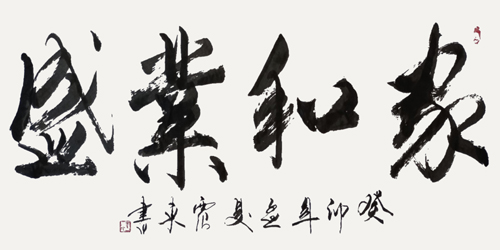 家和業盛
癸卯年孟夏震東書